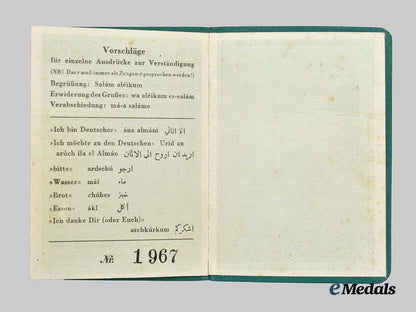 Vorschläge
für einzelne Ausdrücke zur Verständigung
(NB! Das r muß immer als Zungen-r gesprochen werden!)
Begrüßung: Salám aléikum
Erwiderung des Grußes: wa aléikum es-salám
Verabschiedung: má-a saláme
»Ich bin Deutscher« ána almáni انا الماني
»Ich möchte zu den Deutschen« Urid an
arúch íla el Almán اريد ان اروح الى الالمان
»bitte« ardschú ارجو
»Wasser« mái ماء
»Brot« chúbes خبز
»Essen« ákl أكل
»Ich danke Dir (oder Euch)«
aschkúrkum اشكركم
№ 1967
eMedals